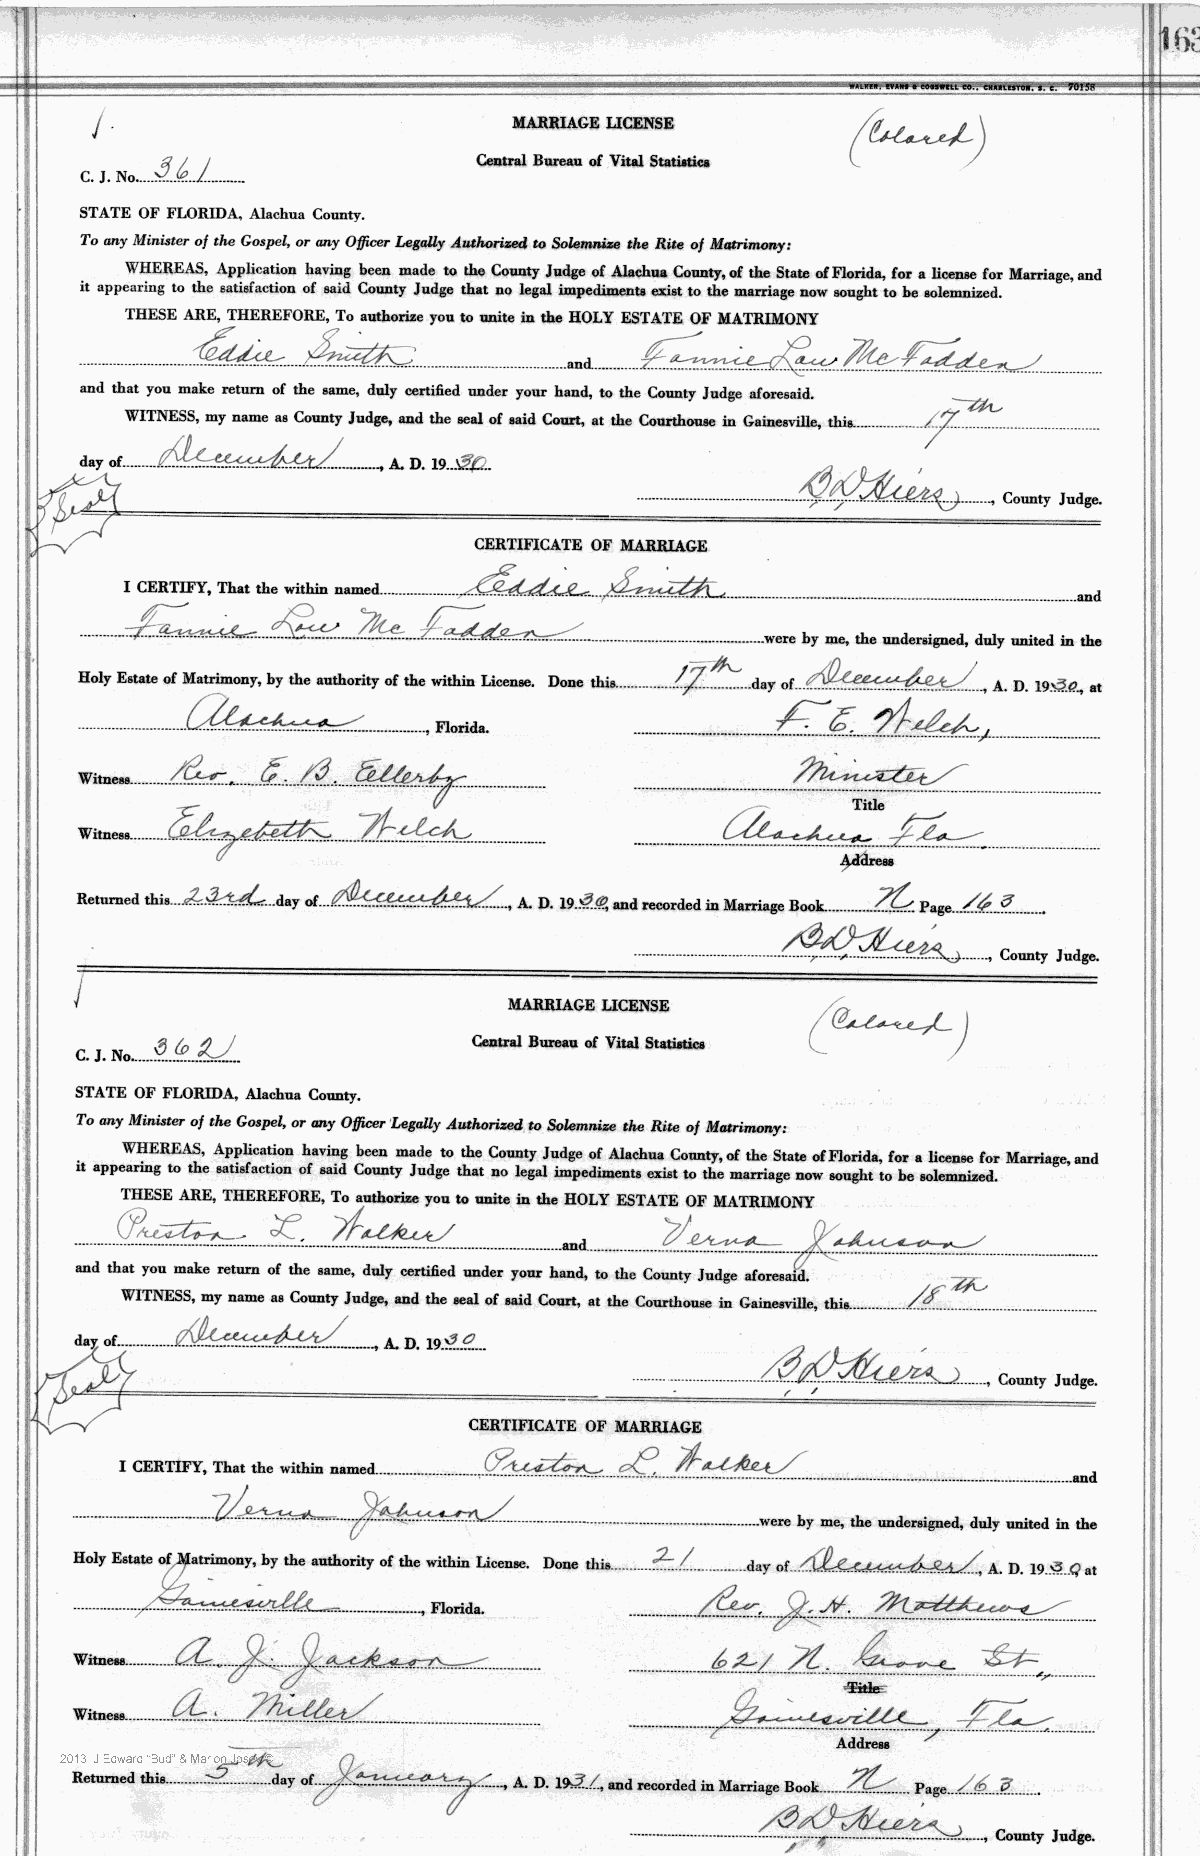 163
WALKER, EVANS & COGSWELL CO., CHARLESTON, S. C. 70158
MARRIAGE LICENSE
(Colored)
Central Bureau of Vital Statistics
C. J. No. 361
STATE OF FLORIDA, Alachua County.
To any Minister of the Gospel, or any Officer Legally Authorized to Solemnize the Rite of Matrimony:
WHEREAS, Application having been made to the County Judge of Alachua County, of the State of Florida, for a license for Marriage, and
it appearing to the satisfaction of said County Judge that no legal impediments exist to the marriage now sought to be solemnized.
THESE ARE, THEREFORE, To authorize you to unite in the HOLY ESTATE OF MATRIMONY
Eddie Smith and Fannie Low Mc Fadden
and that you make return of the same, duly certified under your hand, to the County Judge aforesaid.
WITNESS, my name as County Judge, and the seal of said Court, at the Courthouse in Gainesville, this 17th
day of December, A. D. 1930
Seal
B D Hiers, County Judge.
CERTIFICATE OF MARRIAGE
I CERTIFY, That the within named Eddie Smith and
Fannie Low Mc Fadden were by me, the undersigned, duly united in the
Holy Estate of Matrimony, by the authority of the within License. Done this 17th day of December, A. D. 1930, at
Alachua, Florida. F. E. Welch,
Witness Rev. E. B. Ellerby Minister
Title
Witness Elizebeth Welch Alachua Fla.
Address
Returned this 23rd day of December, A. D. 1930, and recorded in Marriage Book N Page 163.
B D Hiers, County Judge.
MARRIAGE LICENSE
(Colored)
Central Bureau of Vital Statistics
C. J. No. 362
STATE OF FLORIDA, Alachua County.
To any Minister of the Gospel, or any Officer Legally Authorized to Solemnize the Rite of Matrimony:
WHEREAS, Application having been made to the County Judge of Alachua County, of the State of Florida, for a license for Marriage, and
it appearing to the satisfaction of said County Judge that no legal impediments exist to the marriage now sought to be solemnized.
THESE ARE, THEREFORE, To authorize you to unite in the HOLY ESTATE OF MATRIMONY
Preston L. Walker and Verna Johnson
and that you make return of the same, duly certified under your hand, to the County Judge aforesaid.
WITNESS, my name as County Judge, and the seal of said Court, at the Courthouse in Gainesville, this 18th
day of December, A. D. 1930
Seal
B D Hiers, County Judge.
CERTIFICATE OF MARRIAGE
I CERTIFY, That the within named Preston L. Walker and
Verna Johnson were by me, the undersigned, duly united in the
Holy Estate of Matrimony, by the authority of the within License. Done this 21 day of December, A. D. 1930, at
Gainesville, Florida. Rev. J. H. Matthews
Witness A. J. Jackson 621 N. Grove St.,
Title
Witness A. Miller Gainesville, Fla.
Address
2013 J Edward "Bud" & Marion
Returned this 5th day of January, A. D. 1931, and recorded in Marriage Book N Page 163.
B D Hiers, County Judge.